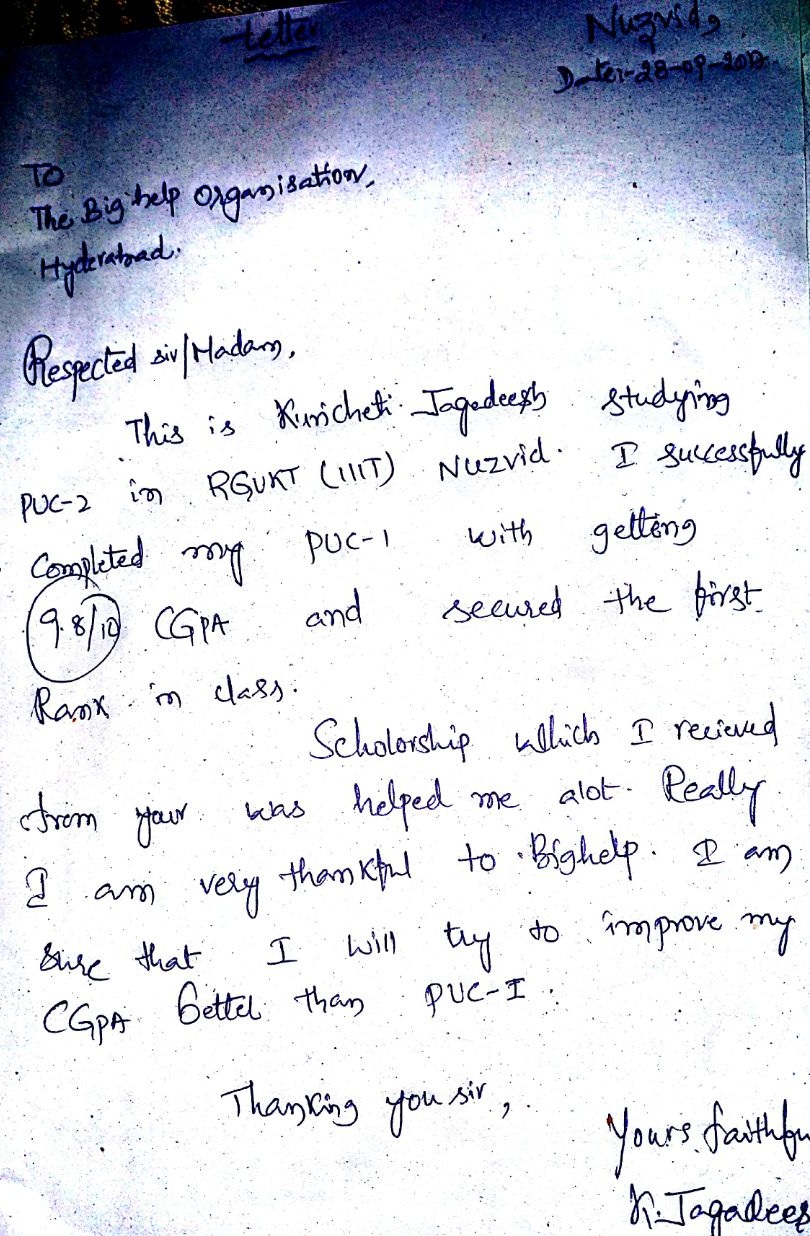 Letter
Nuzvid,
Date:-28-09-2012
To
The Big help Organisation,
Hyderabad.
Respected sir/Madam,
This is Kuricheti Jagadeesh studying
PUC-2 in RGUKT (IIIT) Nuzvid. I successfully
Completed my PUC-1 with getting
9.8/10 CGPA and secured the first
Rank in class.
Scholorship which I recieved
from your was helped me alot. Really
I am very thankful to Bighelp. I am
sure that I will try to improve my
CGPA better than PUC-I.
Thanking you sir,
Yours faithfu
K. Jagadees